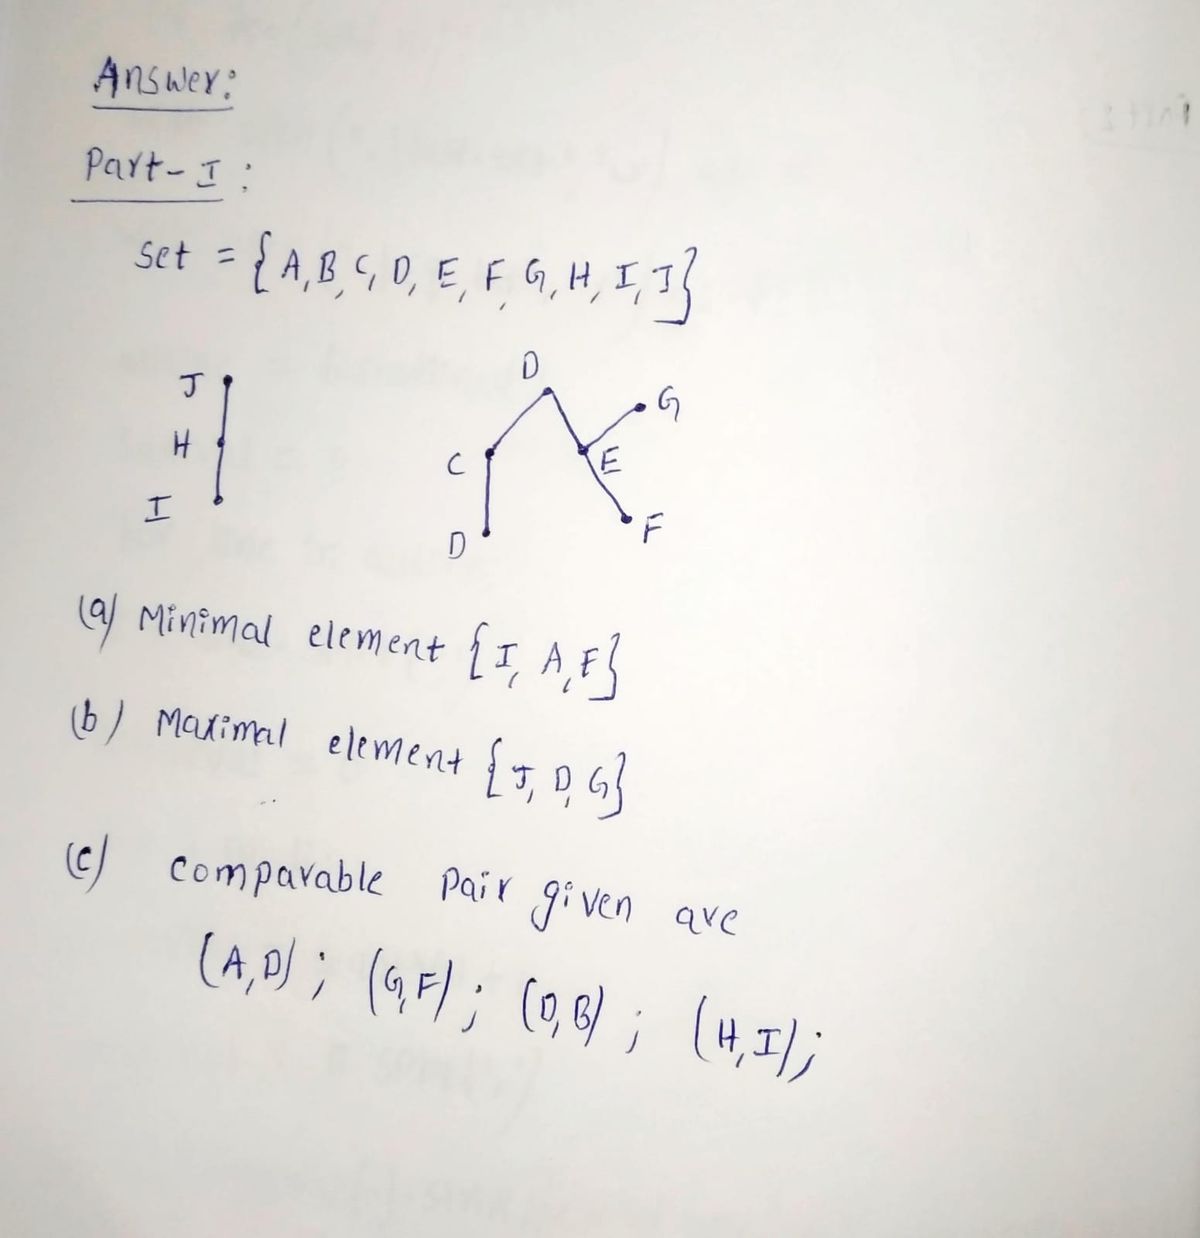 Answer:
Part-I:
Set = {A, B, C, D, E, F, G, H, I, J}
J
H
I
D
G
C
E
D
F
(a) Minimal element {I, A, F}
(b) Maximal element {J, D, G}
(c) Comparable Pair given are
(A,D); (G,F); (D,B); (H,I);